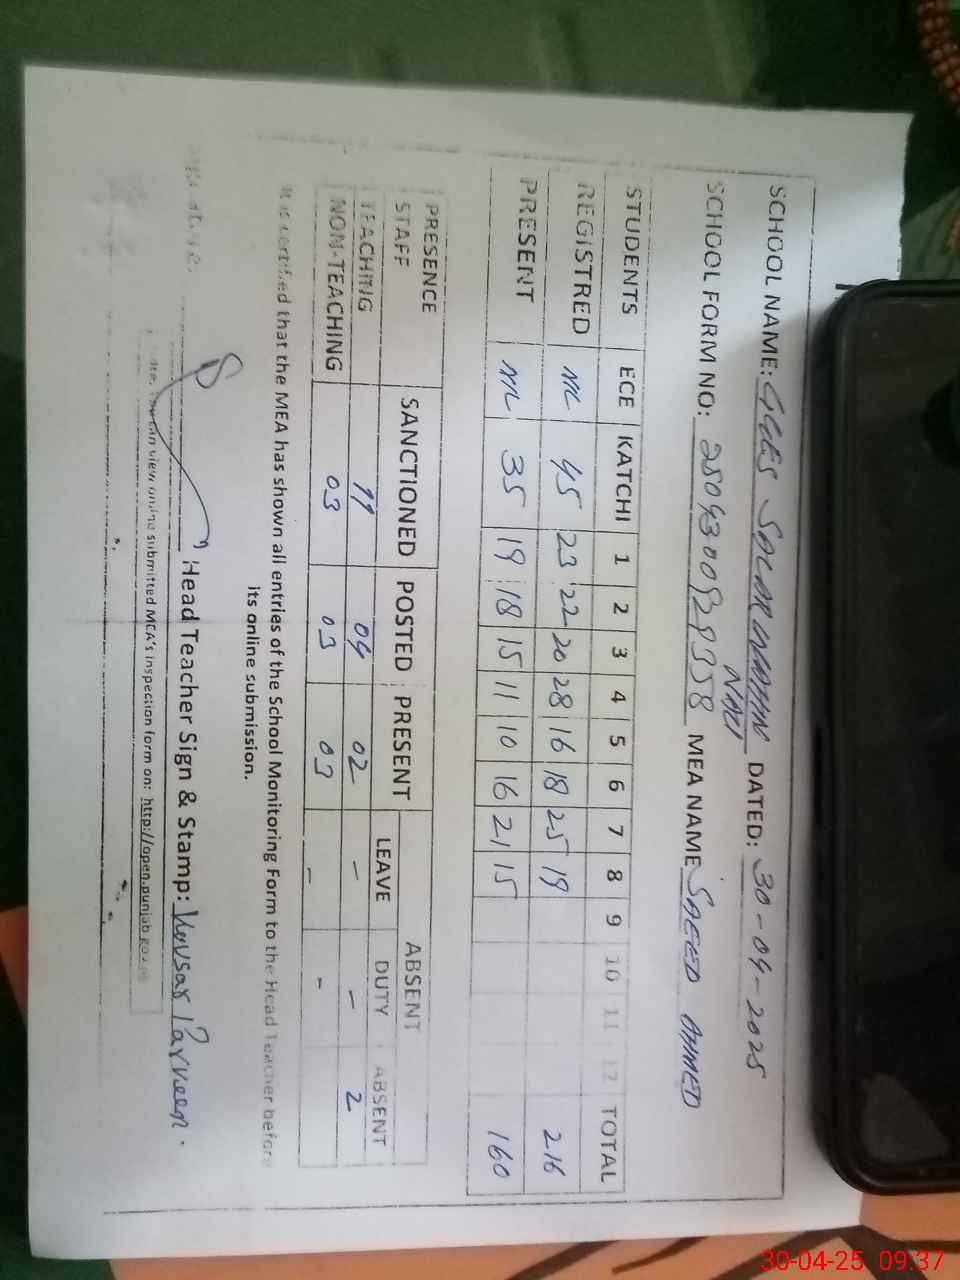 SCHOOL NAME: GGES SALARWAHIN NAU DATED: 30-04-2025
SCHOOL FORM NO: MEA NAME SAEED AHMED
STUDENTS ECE KATCHI 1 2 3 4 5 6 7 8 9 10 11 12 TOTAL
REGISTRED NIL 45 23 22 20 28 16 18 25 19 216
PRESENT NIL 35 19 18 15 11 10 16 21 15 160
PRESENCE STAFF SANCTIONED POSTED PRESENT ABSENT
LEAVE DUTY ABSENT
TEACHING 11 04 02 - - 2
NON-TEACHING 03 03 03 - -
It is certified that the MEA has shown all entries of the School Monitoring Form to the Head Teacher before
its online submission.
Head Teacher Sign & Stamp: Kousar Parveen.
can view online submitted MEA's inspection form on: http://open.punjab.gov.pk
30-04-25 09:37